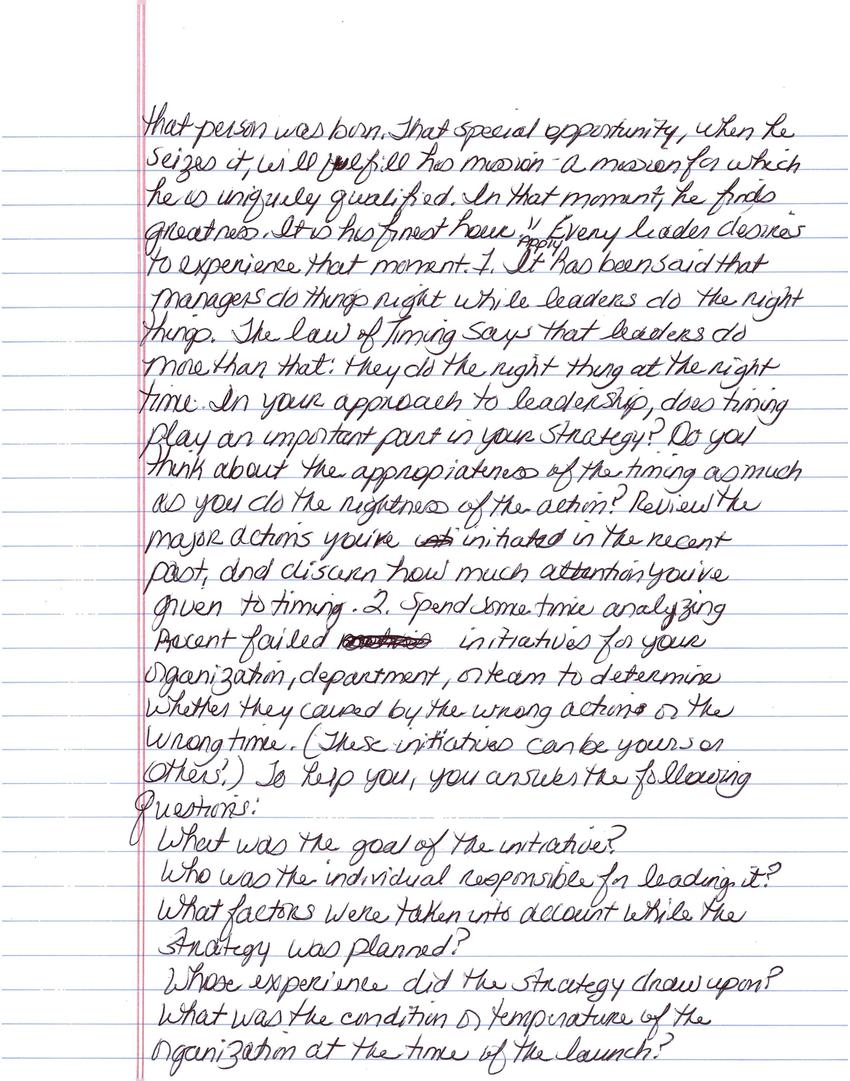 that person was born. That special opportunity, when he
seizes it, will fulfill his mission - a mission for which
he is uniquely qualified. In that moment, he finds
greatness. It is his finest hour." Every leader desires
Apply
to experience that moment. 1. It has been said that
managers do things right while leaders do the right
things. The law of Timing says that leaders do
more than that: they do the right thing at the right
time. In your approach to leadership, does timing
play an important part in your strategy? Do you
think about the appropiateness of the timing as much
as you do the rightness of the action? Review the
major actions you've initiated in the recent
past, and discern how much attention you've
given to timing. 2. Spend some time analyzing
recent failed initiatives for your
organization, department, or team to determine
whether they caused by the wrong actions or the
wrong time. (These initiatives can be yours or
others'.) To help you, you answer the following
Questions:
What was the goal of the initiative?
Who was the individual responsible for leading it?
What factors were taken into account while the
strategy was planned?
Whose experience did the strategy draw upon?
What was the condition or temperature of the
organization at the time of the launch?